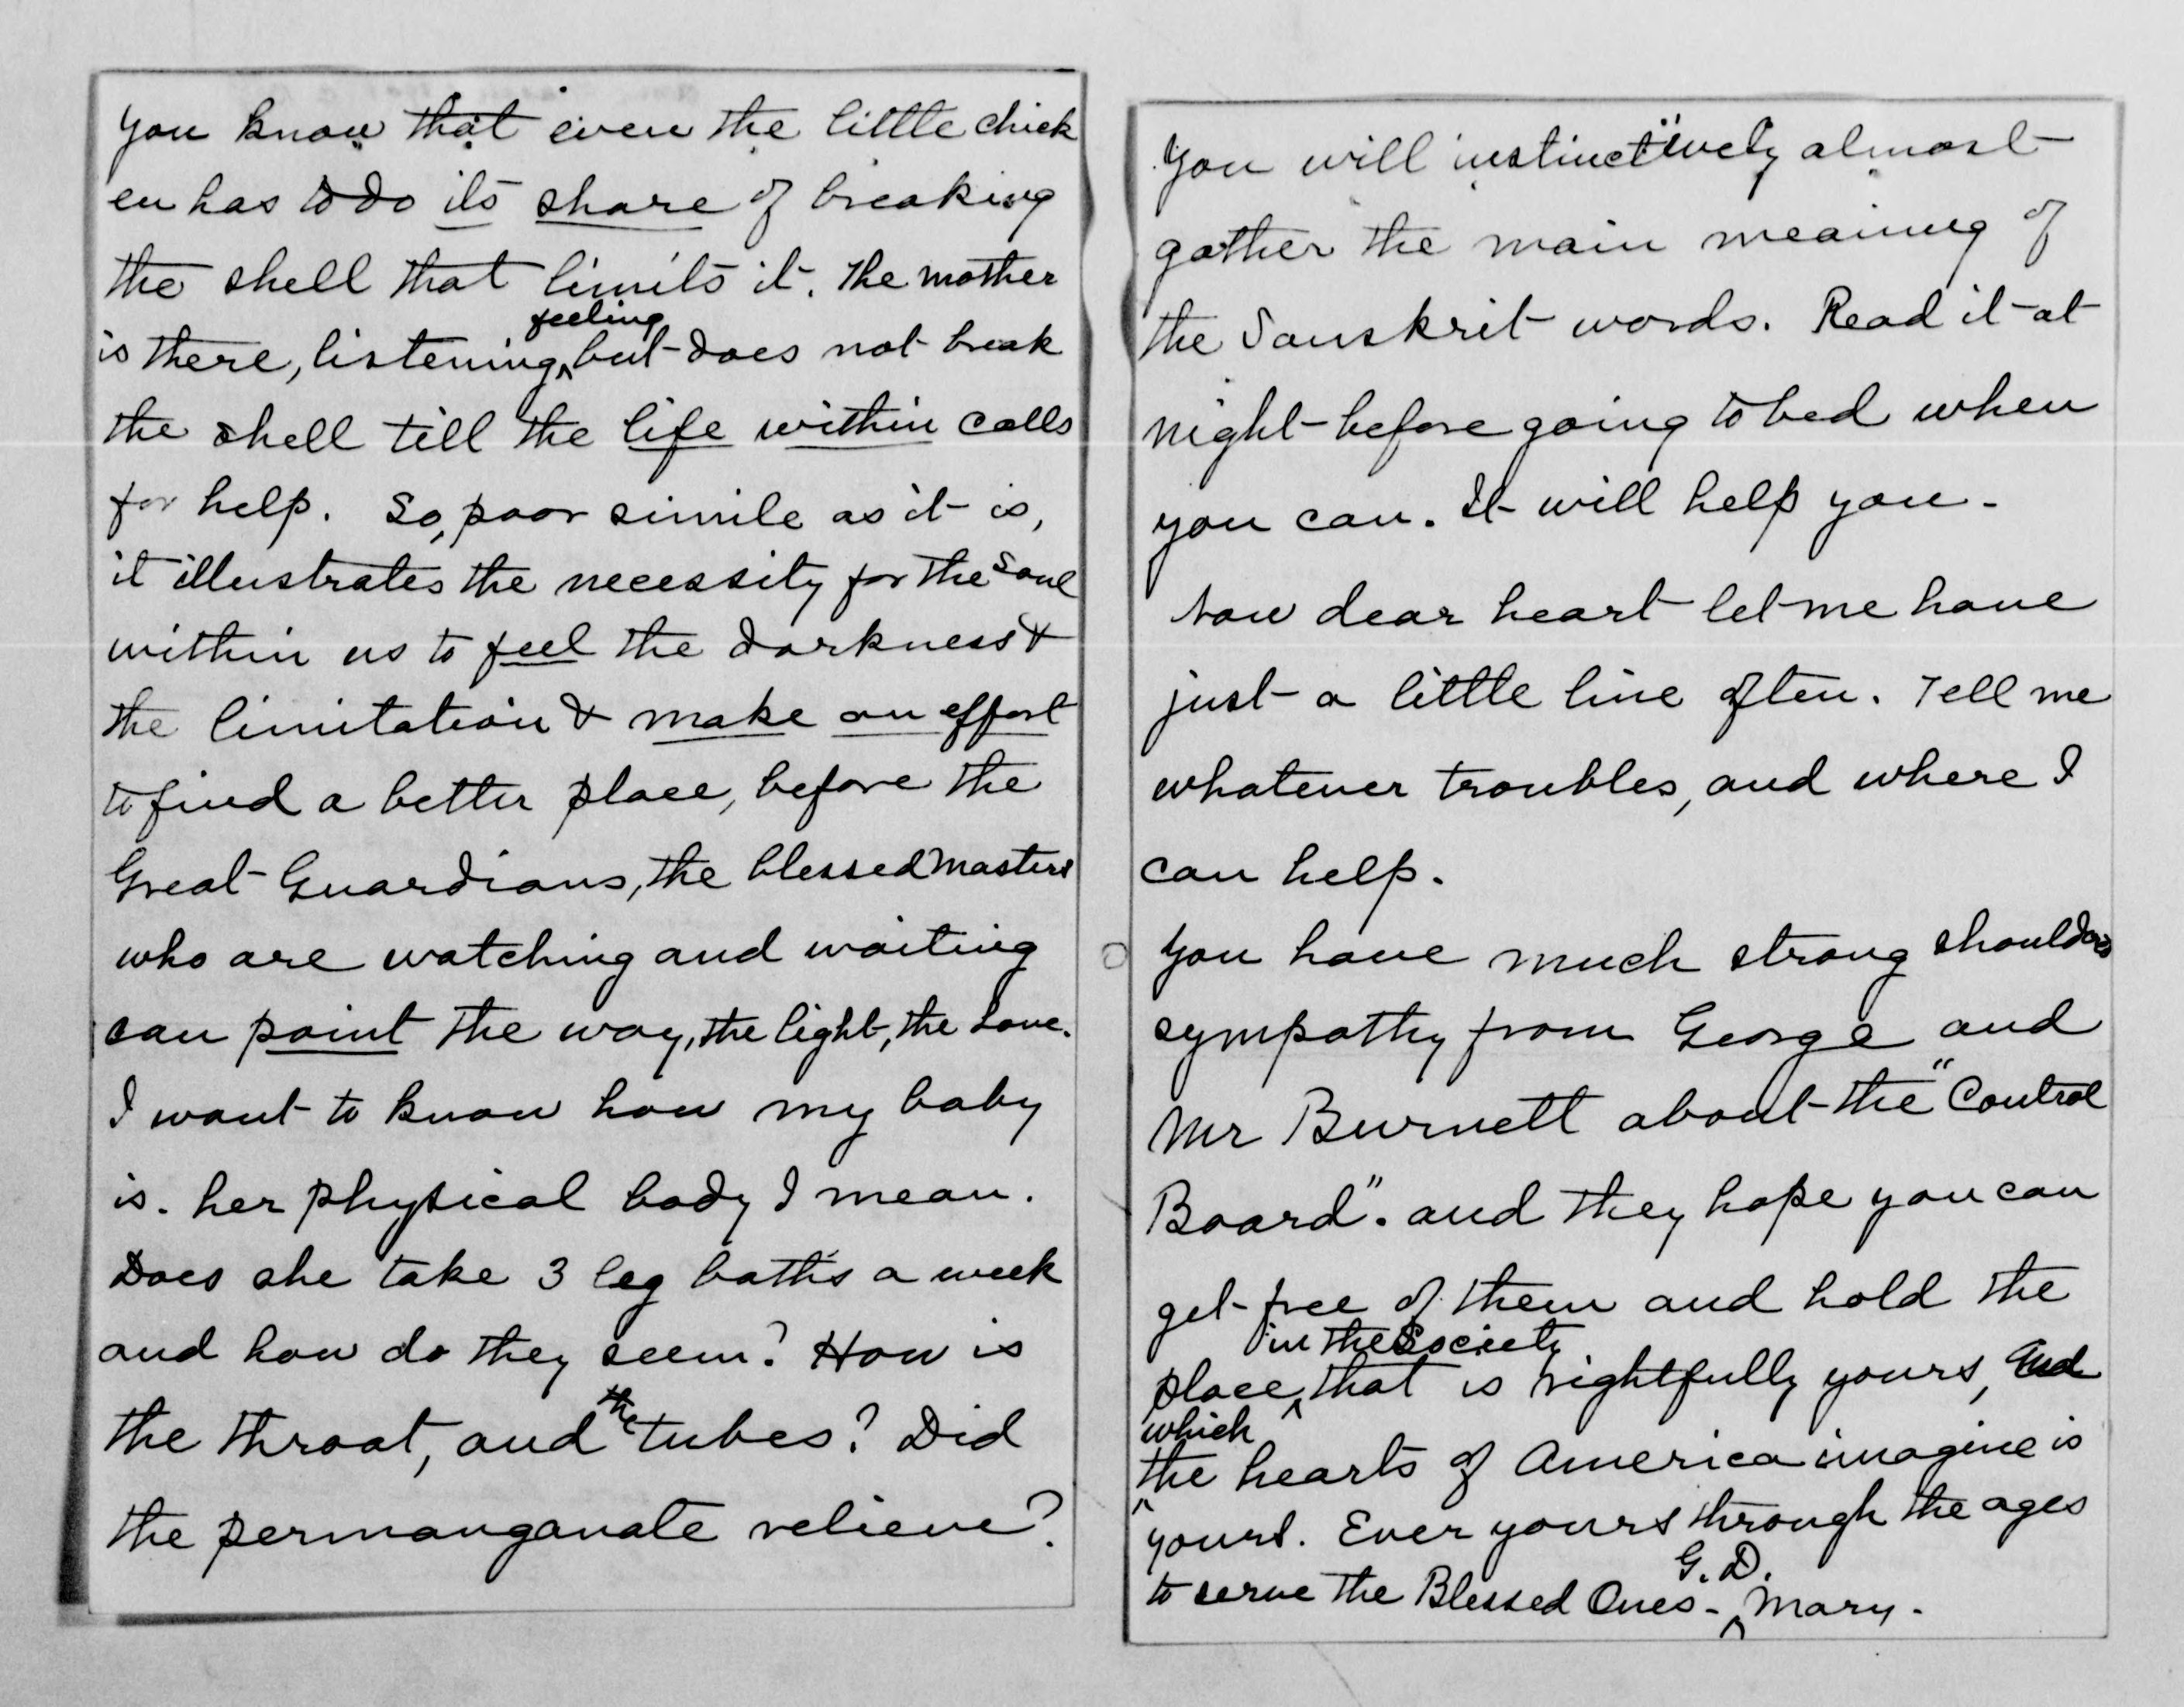 You know that even the little chick
en has to do its share of breaking
the shell that limits it. The mother
feeling
is there, listening, but does not break
the shell till the life within calls
for help. So, poor simile as it is,
it illustrates the necessity for the Soul
within us to feel the darkness &
the limitation & make an effort
to find a better place, before the
Great Guardians, the blessed Masters
who are watching and waiting
can point the way, the light, the Love.
I want to know how my baby
is. her physical body I mean.
Does she take 3 leg baths a week
and how do they seem? How is
the
the throat, and tubes? Did
the permanganate relieve?
You will instinctively almost
gather the main meaning of
the Sanskrit words. Read it at
night before going to bed when
you can. It will help you.
Now dear heart let me have
just a little line often. Tell me
whatever troubles, and where I
can help.
You have much strong shoulders
sympathy from George and
Mr Burnett about the "Control
Board". and they hope you can
get free of them and hold the
in the Society
place, that is rightfully yours, and
which
the hearts of America imagine is
yours. Ever yours through the ages
G. D.
to serve the Blessed Ones - Mary.